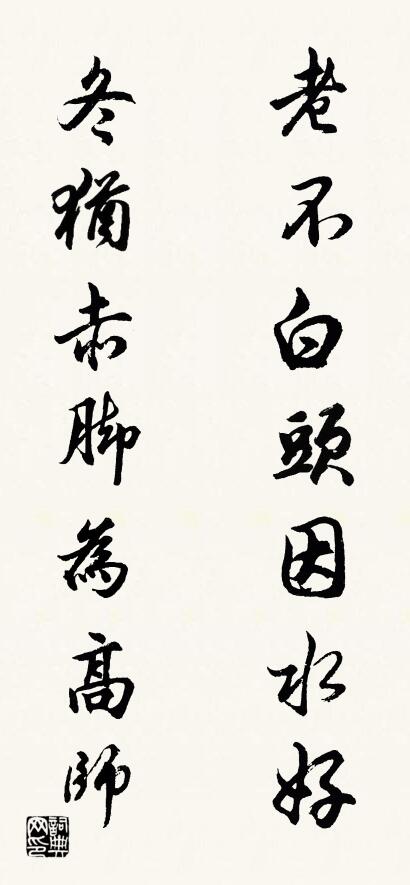 老不白頭因水好
冬猶赤脚為高師
詞典網印